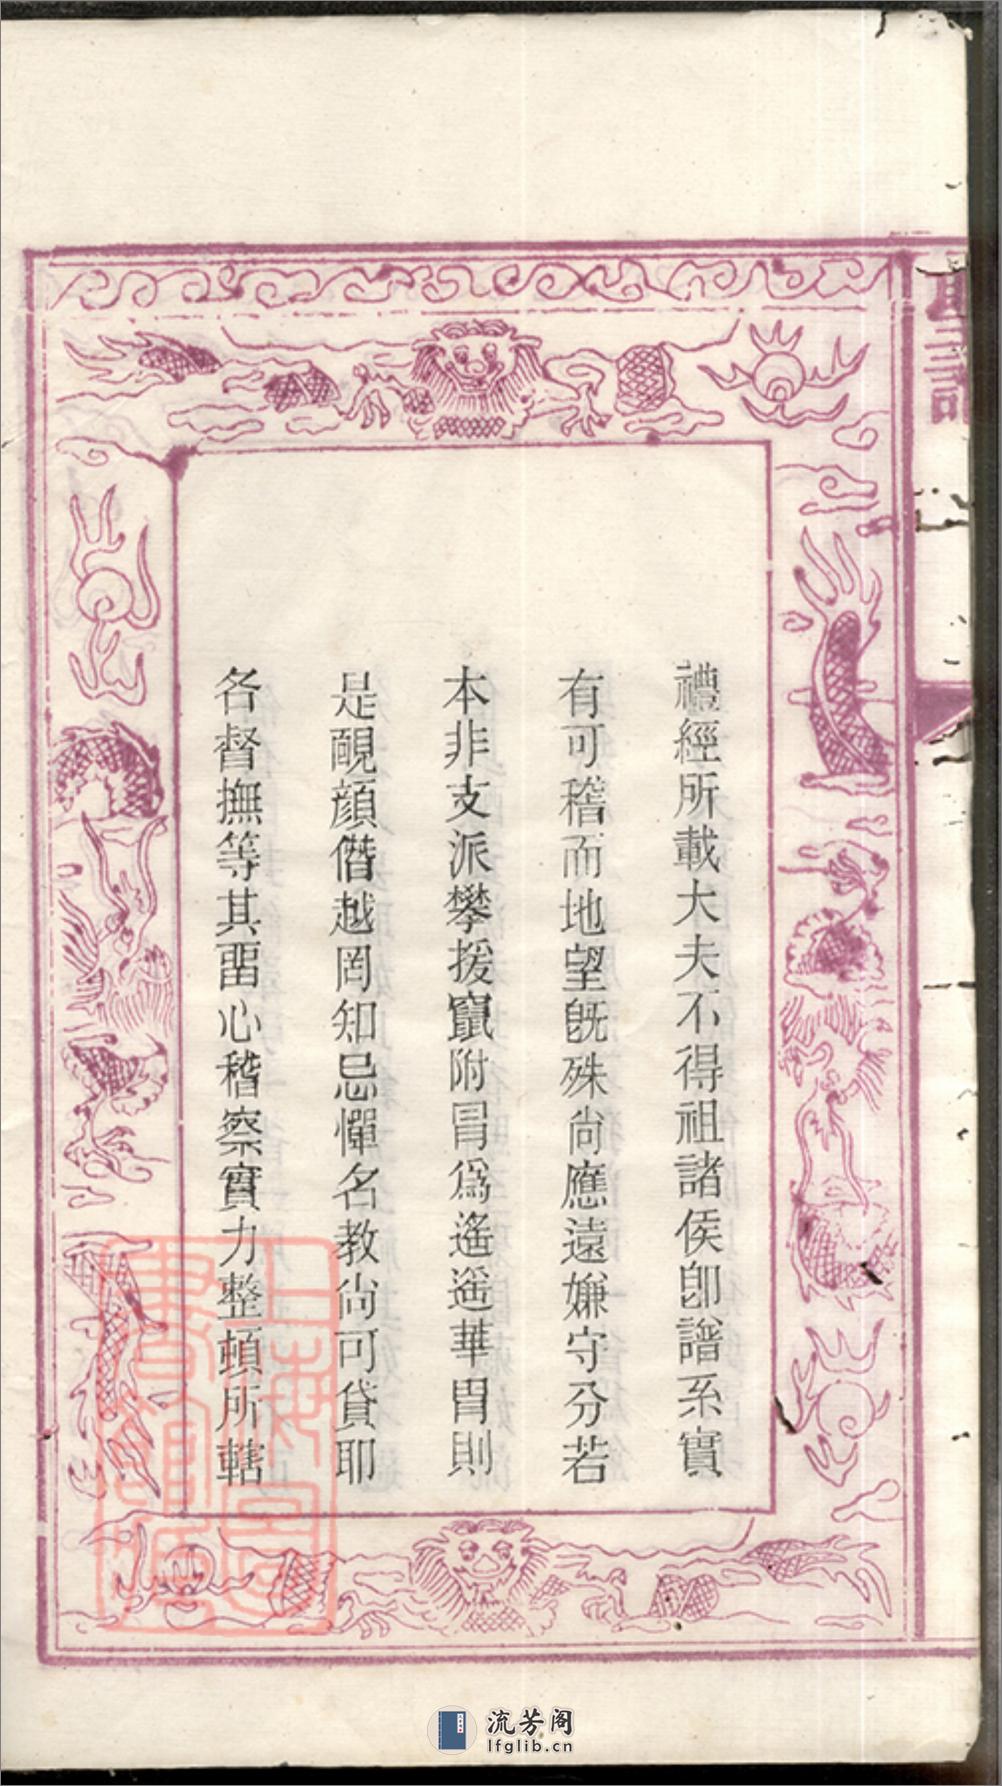 禮經所載大夫不得祖諸侯卽譜系實
有可稽而地望旣殊尙應遠嫌守分若
本非支派攀援竄附冐爲遙遙華胄則
是靦顔僭越罔知忌憚名教尙可貸耶
各督撫等其畱心稽察實力整頓所轄
上海圖書館藏
流芳阁
lfglib.cn